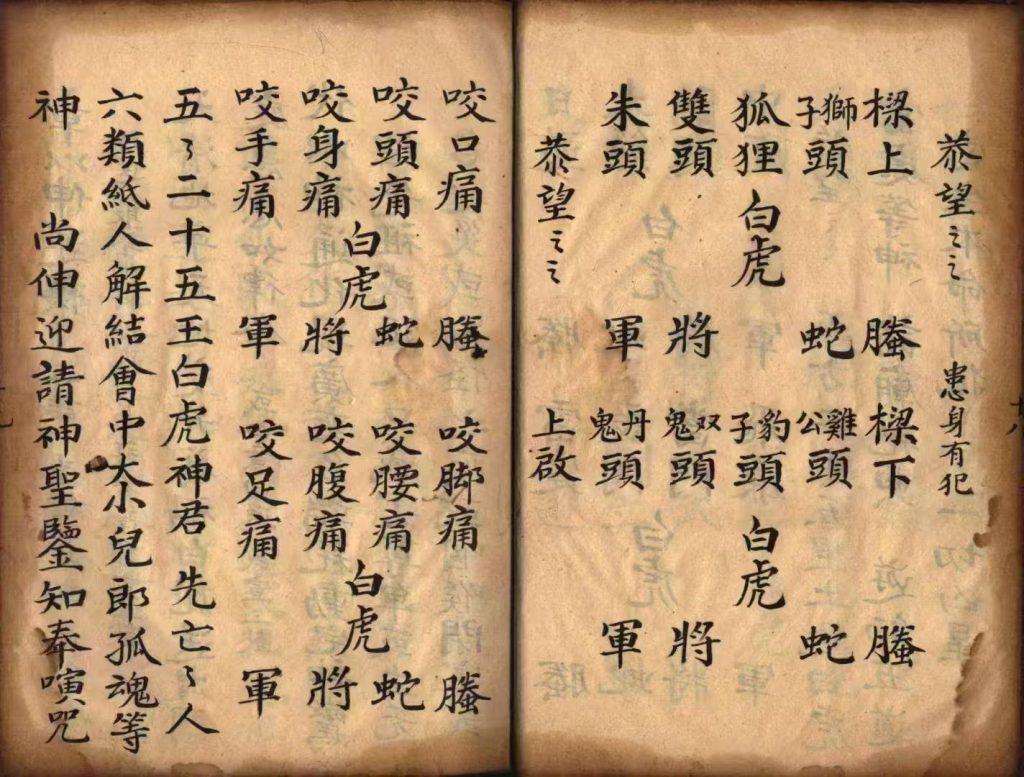 恭望之之 患身有犯
樑上 螣 樑下 螣
獅子頭 蛇 雞公頭 蛇
狐狸 白虎 豹子頭 白虎
雙頭 將 双鬼頭 將
朱頭 軍 丹鬼頭 軍
恭望之之 上啟
咬口痛 螣 咬脚痛 螣
咬頭痛 蛇 咬腰痛 蛇
白虎 白虎
咬身痛 將 咬腹痛 將
咬手痛 軍 咬足痛 軍
五〻二十五王白虎神君 先亡〻人
六類紙人解結會中大小兒郎孤魂等
神 尚伸迎請神聖鑒知奉演咒